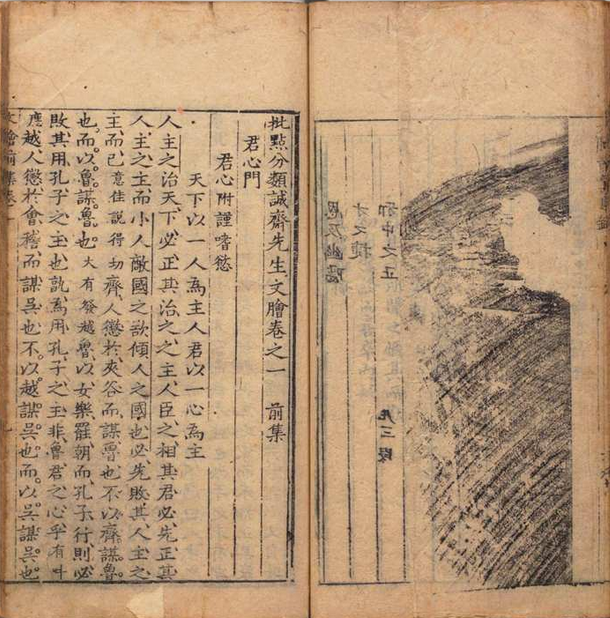 之正
三段
批點分類誠齋先生文膾卷之一 前集
君心門
君心附謹嗜慾
天下以一人為主人君以一心為主
人主之治天下必正其治之之主人臣之相其君必先正其
人主之主而小人敵國之欲傾人之國也必先敗其人主之
主而已意佳說得切齊人懲於夾谷而謀魯也不以齊謀魯
也而以魯謀魯也大有發越魯以女樂罷朝而孔子行則必
敗其用孔子之主也孰為用孔子之主非魯君之心乎有叶
越人懲於會稽而謀吳也不以越謀吳也而以吳謀吳也
文膾前集卷一